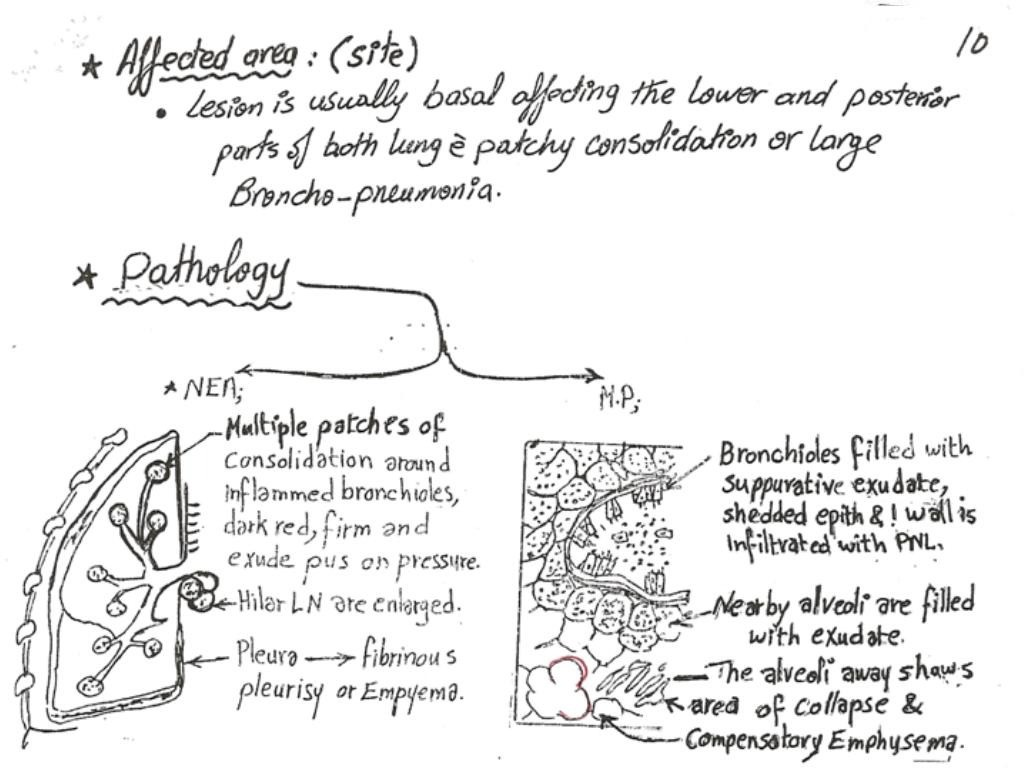 10
★ Affected area : (site)
• Lesion is usually basal affecting the lower and posterior
parts of both lung c̄ patchy consolidation or large
Broncho-pneumonia.
★ Pathology
★ NEA;
M.P;
Multiple patches of
consolidation around
inflammed bronchioles,
dark red, firm and
exude pus on pressure.
Hilar LN are enlarged.
Pleura → fibrinous
pleurisy or Empyema.
Bronchioles filled with
suppurative exudate,
shedded epith & ! wall is
infiltrated with PNL.
Nearby alveoli are filled
with exudate.
The alveoli away shows
area of collapse &
Compensatory Emphysema.